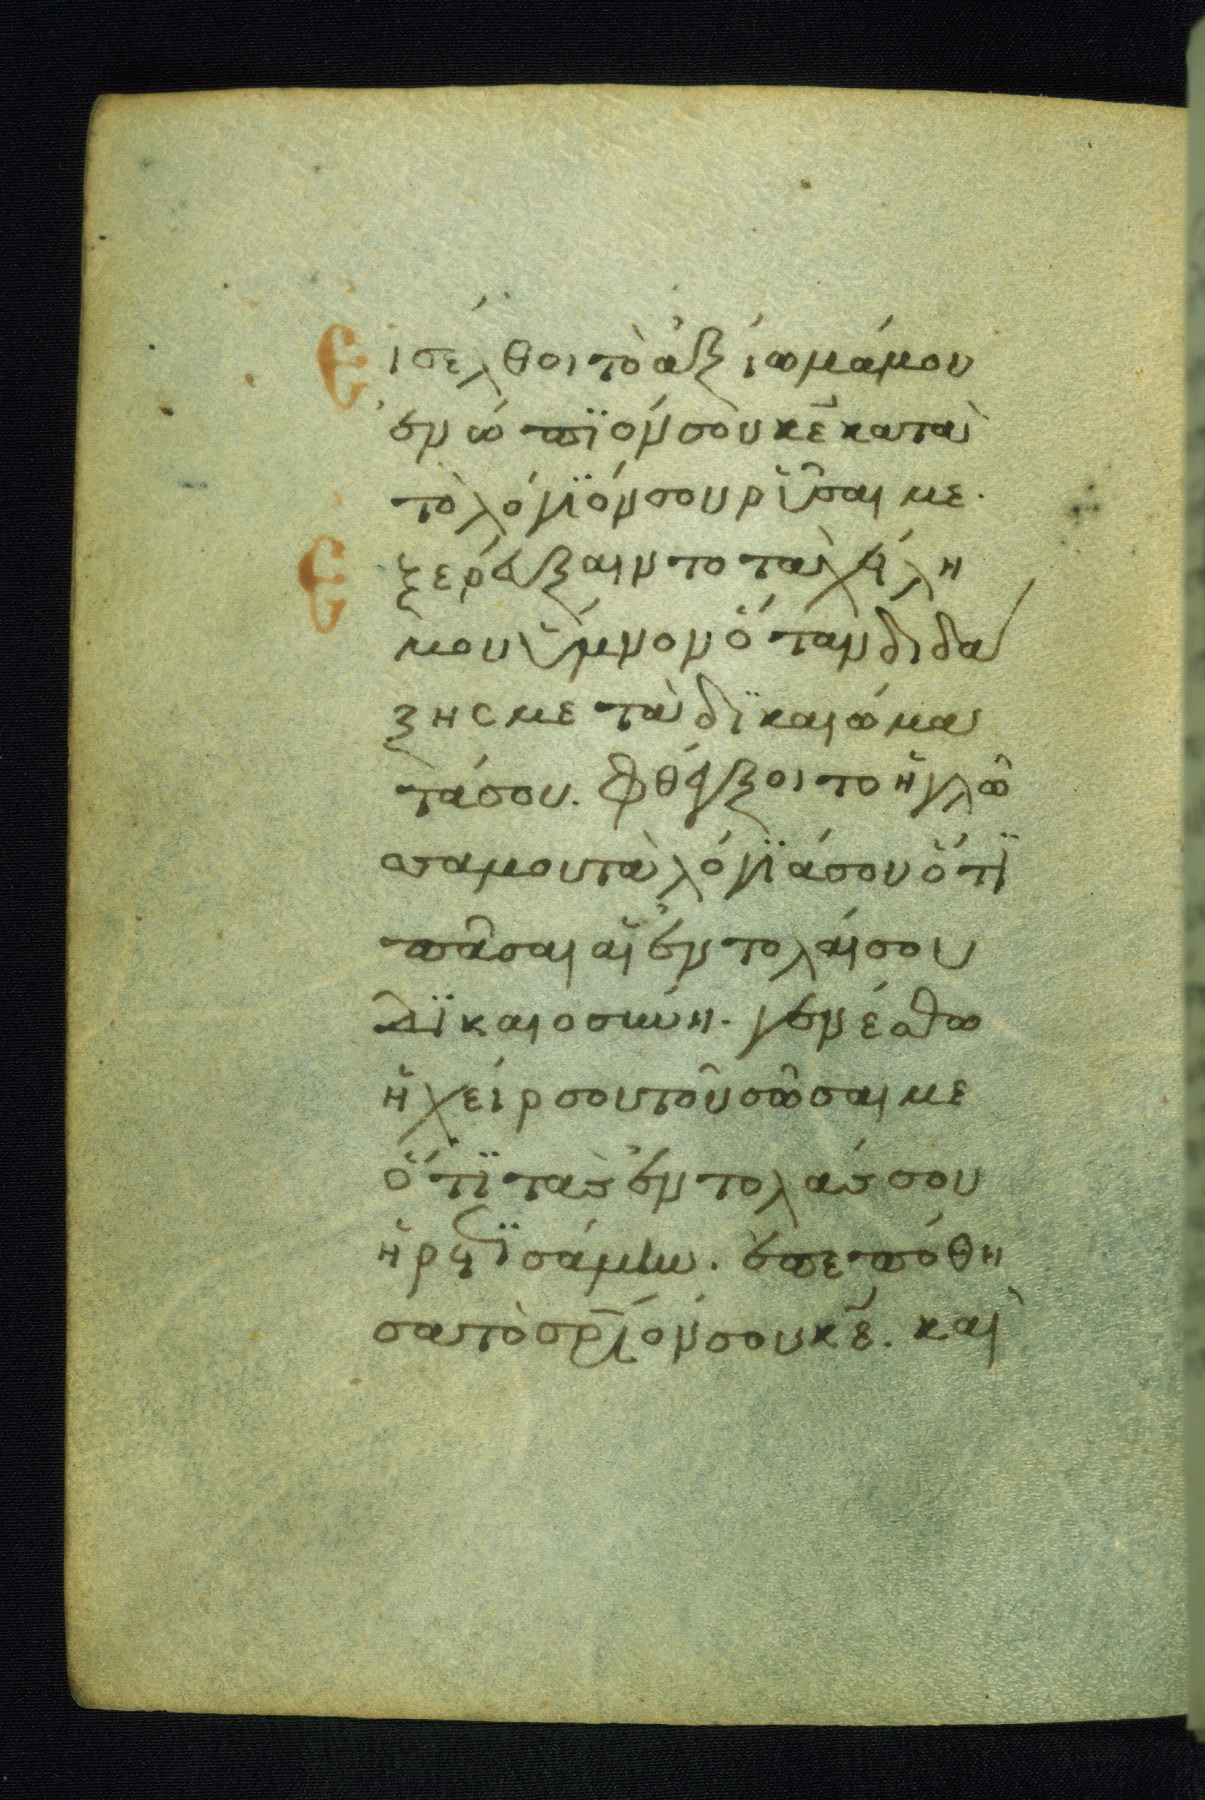 Εἰσέλθοι τὸ ἀξίωμά μου
ἐνώπϊόν σου κ̅ε̅ κατὰ
τὸ λόγϊόν σου ρῦσαι με.
Ἐξερεύξαιντο τὰ χείλη
μου ὕμνον ὅταν διδά
ξης με τὰ δϊκαιώμα
τά σου. φθέγξοιτο ἡ γλῶ
σσα μου τὰ λόγϊά σου ὅτϊ
πᾶσαι αἱ ἐντολαί σου
δϊκαιοσύνη. γενέσθω
ἡ χείρ σου τοῦ σῶσαι με
ὅτϊ τὰς ἐντολάς σου
ἡρετϊσάμην. ἐπεπόθη
σα τὸ σ̅ρ̅ϊόν σου κ̅ε̅. καὶ